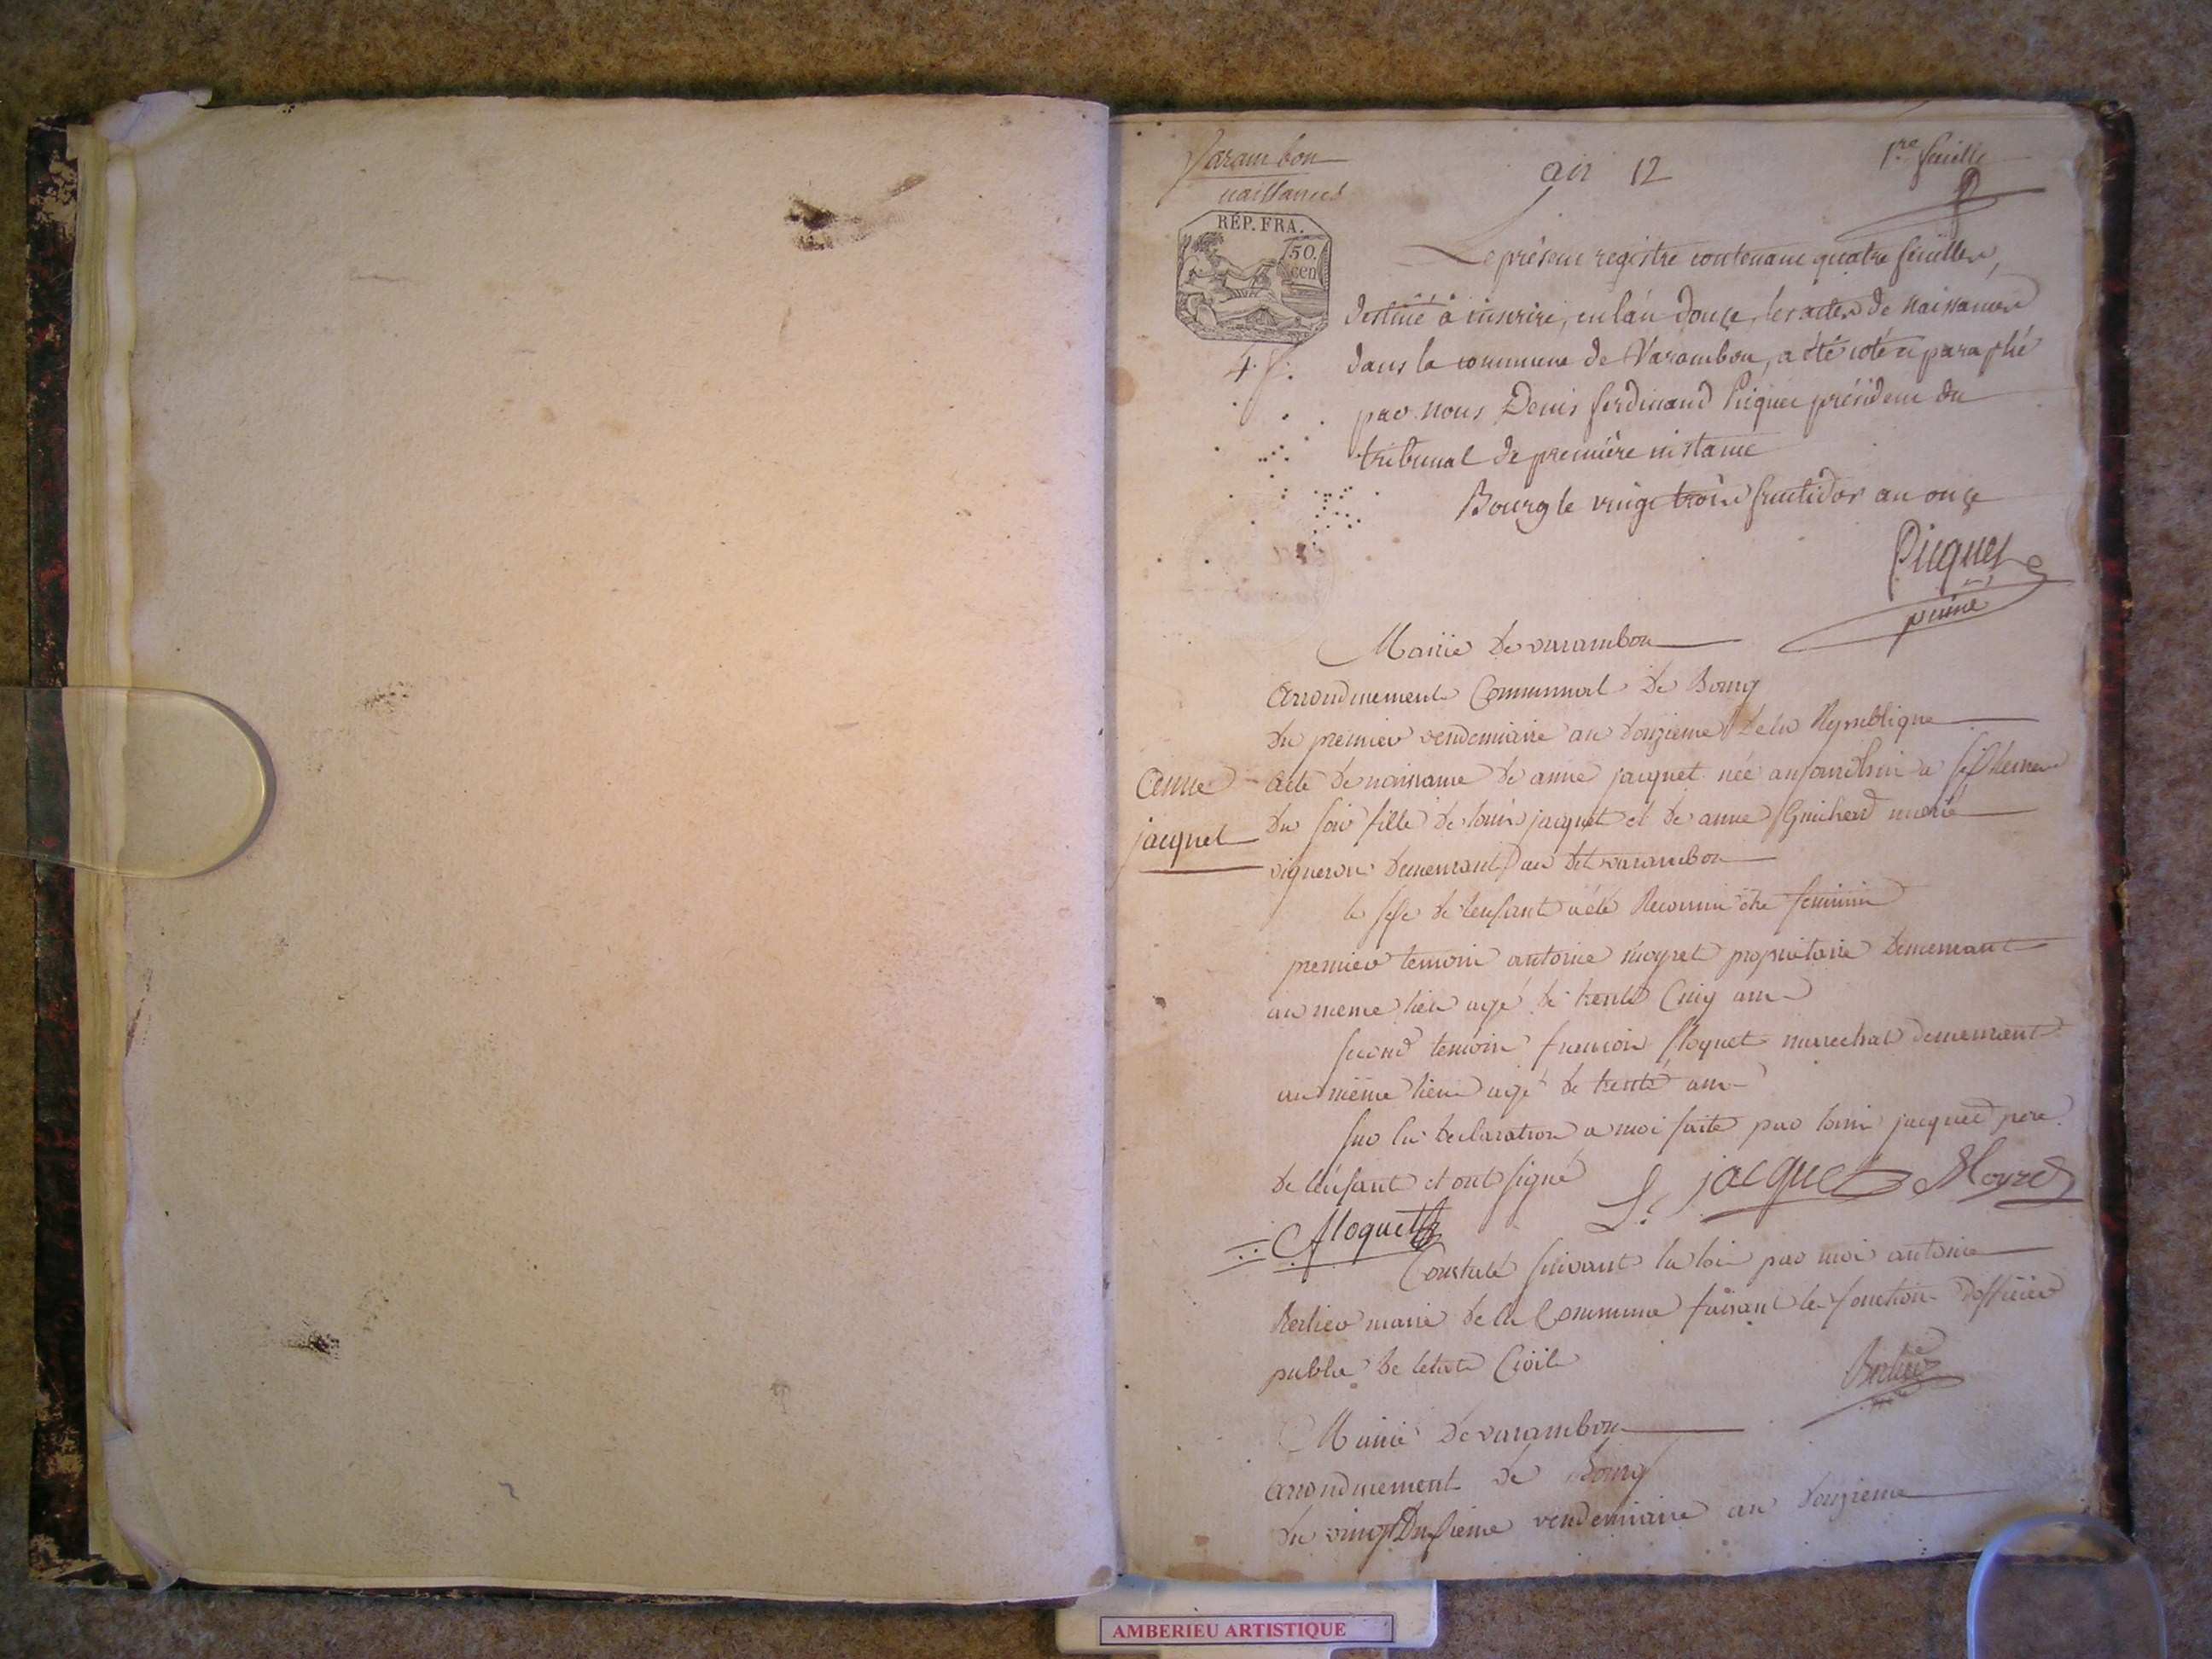 Varambon
naissances
an 12
1.re feuille
RÉP. FRA.
50.
cen
4 f.
Le présent registre contenant quatre feuilles,
destiné à inscrire, en l'an douze, les actes de naissances
dans la commune de Varambon, a été coté et paraphé
par nous Denis ferdinand Picquet président du
tribunal de première instance
Bourg le vingt trois fructidor an onze
Picquet
Mairie de varambon
arrondissement Communal de Bourg
du premier vendemiaire an douzieme de la Republique
anne
jacquet
acte de naissance de anne jacquet née aujourdhuy a heure
du soir fille de louis jacquet et de anne Guichard marié
vigneron demeurant au dit varambon
le sexe de lenfant a été Reconnu être feminin
premier temoin antoine moyret propriétaire demeurant
au meme lieu agé de trente Cinq ans
second temoin françois floquet marechal demeurant
au même lieu agé de trente ans
sur la declaration a moi faite par louis jacquet pere
de lenfant et ont signé
L. jacquet Moyret
floquet
Constaté suivant la loi par moi antoine
Berlier maire de la Commune faisant les fonction dofficier
public de letat Civil
Berlier
Mairie de varambon
arrondissement de Bourg
du vingt vendemiaire an douzieme
AMBERIEU ARTISTIQUE